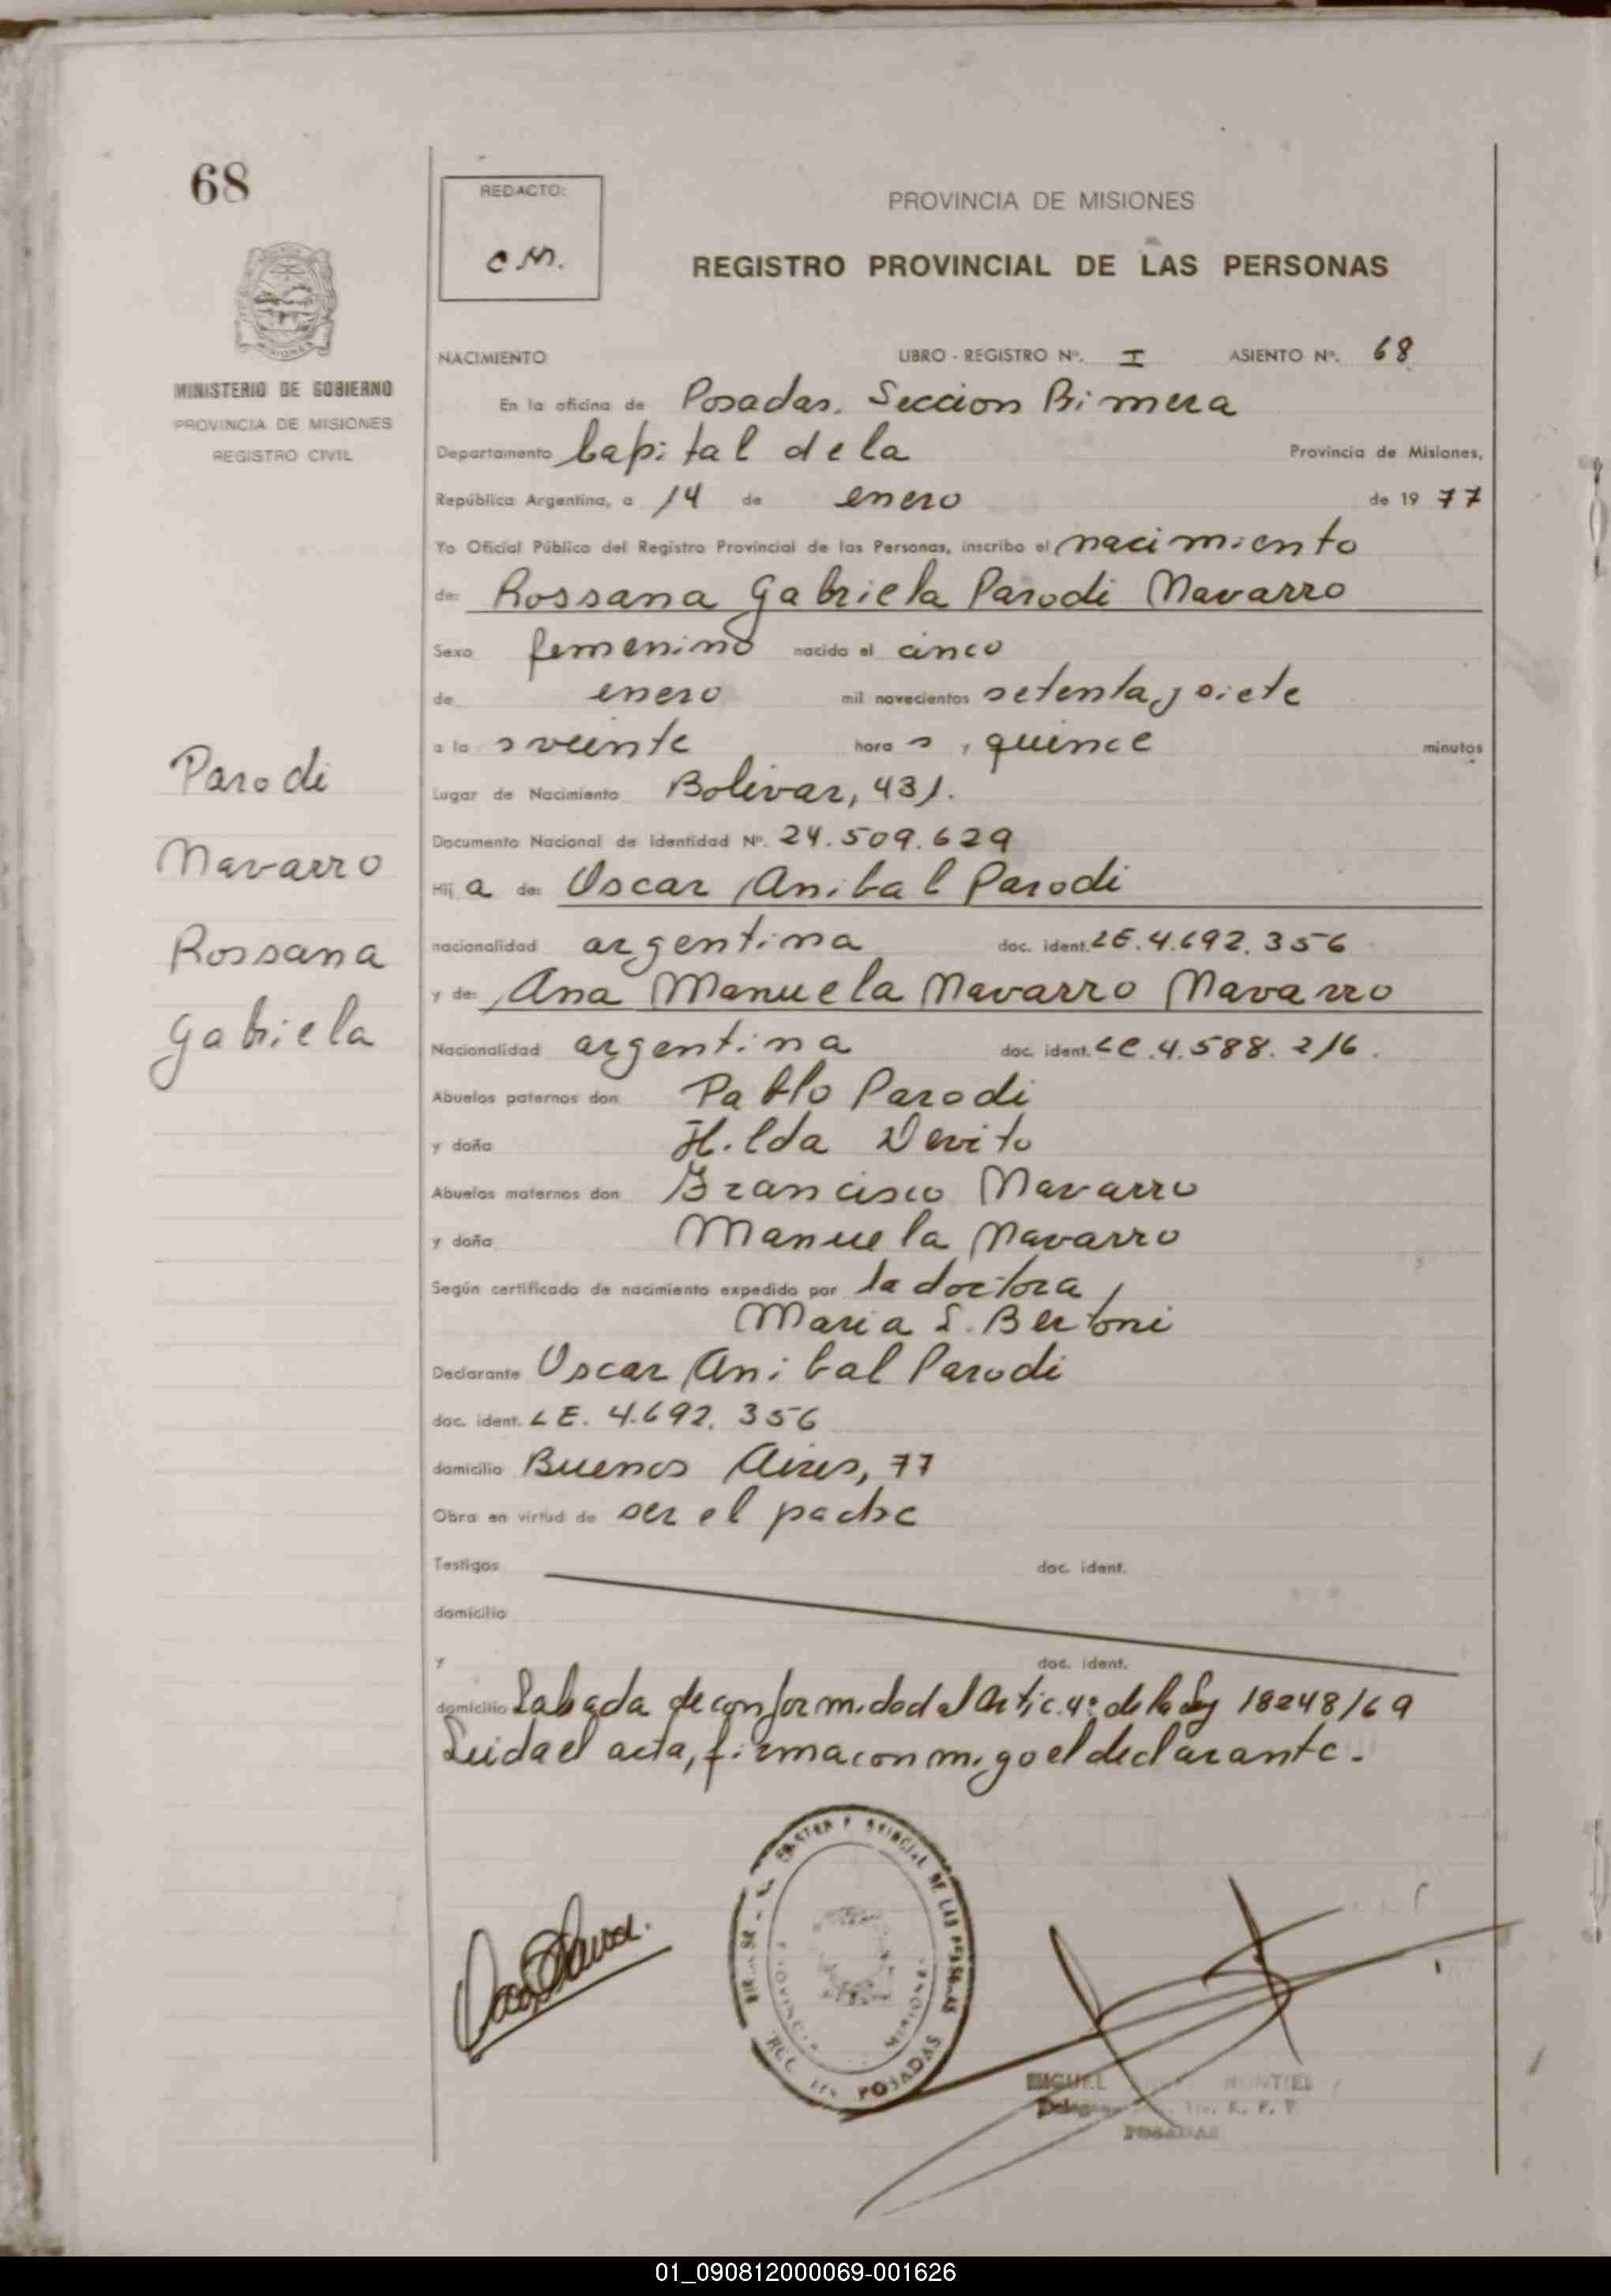 68
MINISTERIO DE GOBIERNO
PROVINCIA DE MISIONES
REGISTRO CIVIL
Parodi
Navarro
Rossana
Gabriela
REDACTO:
C M.
PROVINCIA DE MISIONES
REGISTRO PROVINCIAL DE LAS PERSONAS
NACIMIENTO LIBRO - REGISTRO Nº. I ASIENTO Nº. 68
En la oficina de Posadas. Seccion Primera
Departamento Capital de la Provincia de Misiones,
República Argentina, a 14 de enero de 1977
Yo Oficial Público del Registro Provincial de las Personas, inscribo el nacimiento
de: Rossana Gabriela Parodi Navarro
Sexo femenino nacido el cinco
de enero mil novecientos setenta y siete
a la s veinte hora s y quince minutos
Lugar de Nacimiento Bolivar, 431.
Documento Nacional de Identidad Nº. 24.509.629
Hij a de: Oscar Anibal Parodi
nacionalidad argentina doc. ident. LE. 4.692.356
y de: Ana Manuela Navarro Navarro
Nacionalidad argentina doc. ident. LC. 4.588.216.
Abuelos paternos don Pablo Parodi
y doña Hilda Devito
Abuelos maternos don Francisco Navarro
y doña Manuela Navarro
Según certificado de nacimiento expedido por la doctora
Maria S. Bertoni
Declarante Oscar Anibal Parodi
doc. ident. LE. 4.692.356
domicilio Buenos Aires, 77
Obra en virtud de ser el padre
Testigos doc. ident.
domicilio
y doc. ident.
domicilio Labada de conformidad al Artic. 4º de la Ley 18248/69
Leida el acta, firma con migo el declarante.
PROVINCIAL DE LAS PERSONAS
PROVINCIA MISIONES
POSADAS
MIGUEL MONTIEL
POSADAS
01_090812000069-001626